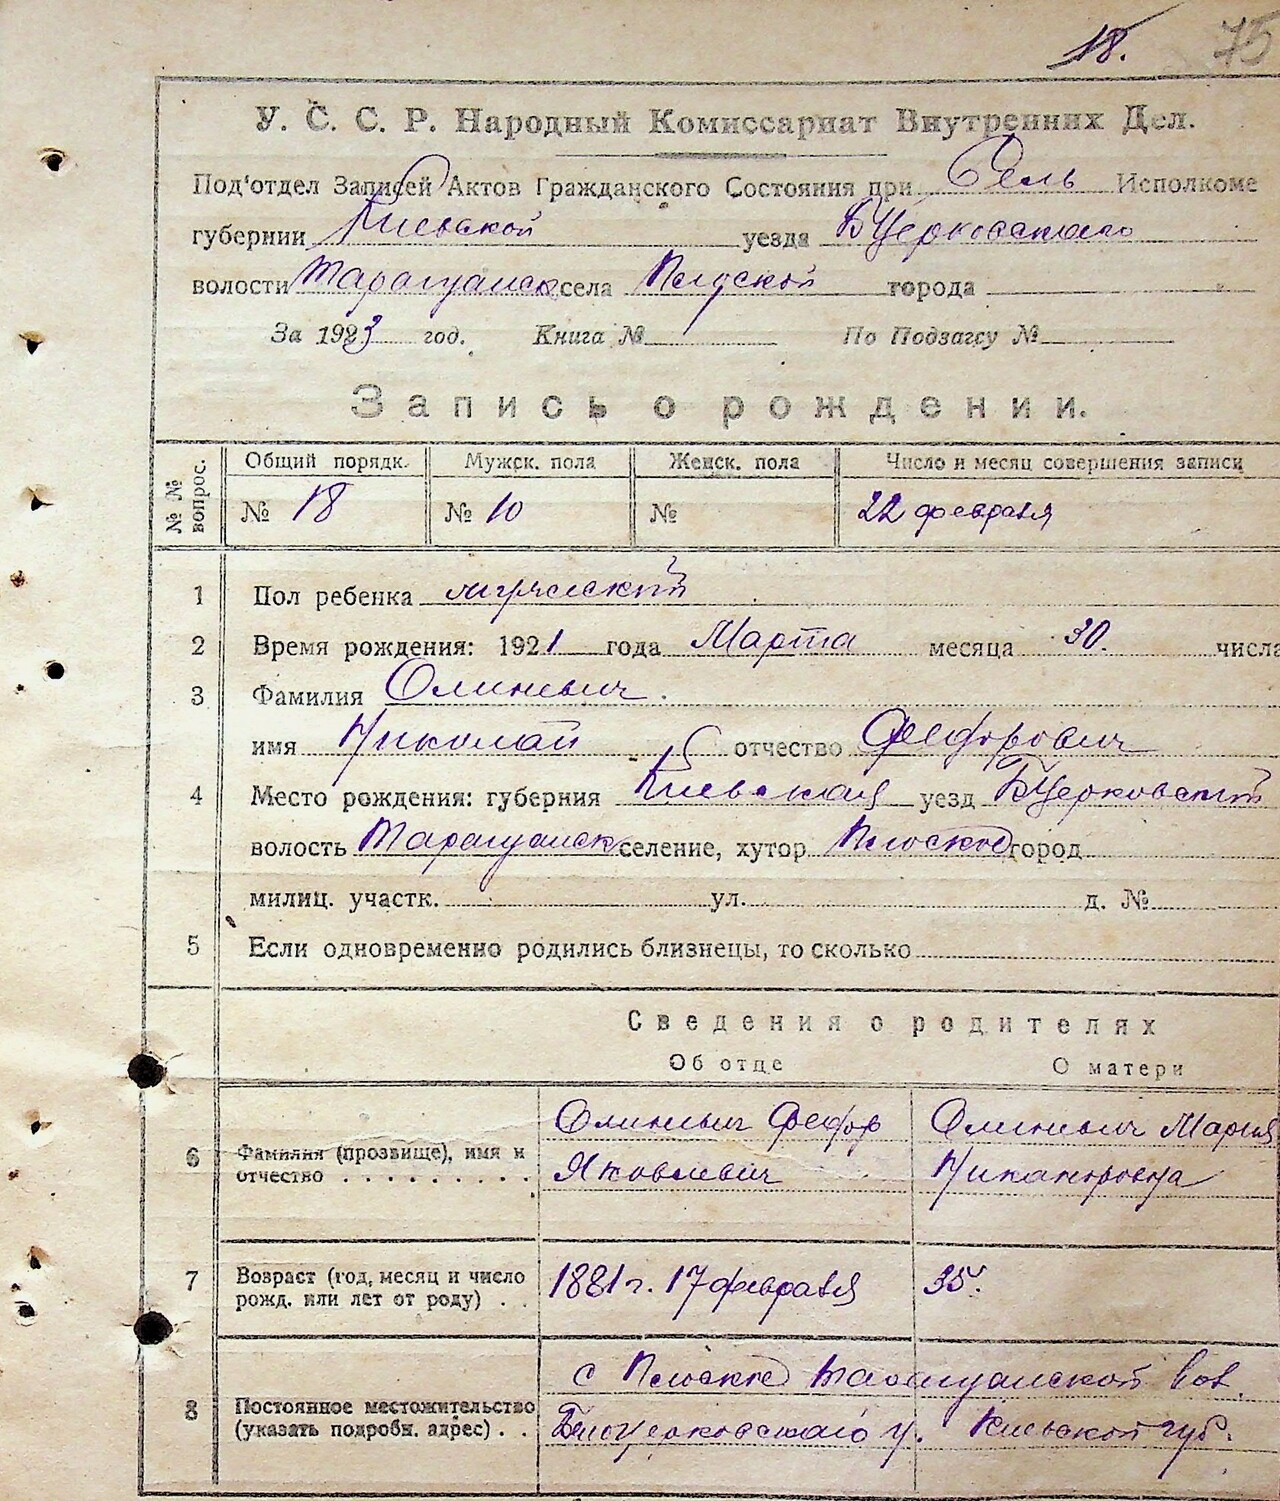 18. 75
У. С. С. Р. Народный Комиссариат Внутренних Дел.
Под'отдел Записей Актов Гражданского Состояния при Сель Исполкоме
губернии Киевской уезда БЦерковскаго
волости Таращанск села Плоской города
За 1923 год. Книга № По Подзагсу №
Запись о рождении.
№ № вопрос. Общий порядк. Мужск. пола Женск. пола Число и месяц совершения записи
№ 18 № 10 № 22 февраля
1 Пол ребенка мужеский
2 Время рождения: 1921 года Марта месяца 30. числа
3 Фамилия Олиневич.
имя Николай отчество Федорович
4 Место рождения: губерния Киевская уезд БЦерковский
волость Таращанск селение, хутор Плоское город
милиц. участк. ул. д. №
5 Если одновременно родились близнецы, то сколько
Сведения о родителях
Об отце О матери
Олиневич Федор Олиневич Мария
6 Фамилия (прозвище), имя и
отчество . . . . . . . . . . Яковлевич Никаноровна
7 Возраст (год, месяц и число
рожд. или лет от роду) . . 1881 г. 17 февраля 35.
с Плоское Таращанской вол.
8 Постоянное местожительство
(указать подробн. адрес) . . Белоцерковскаго у. Киевской губ.